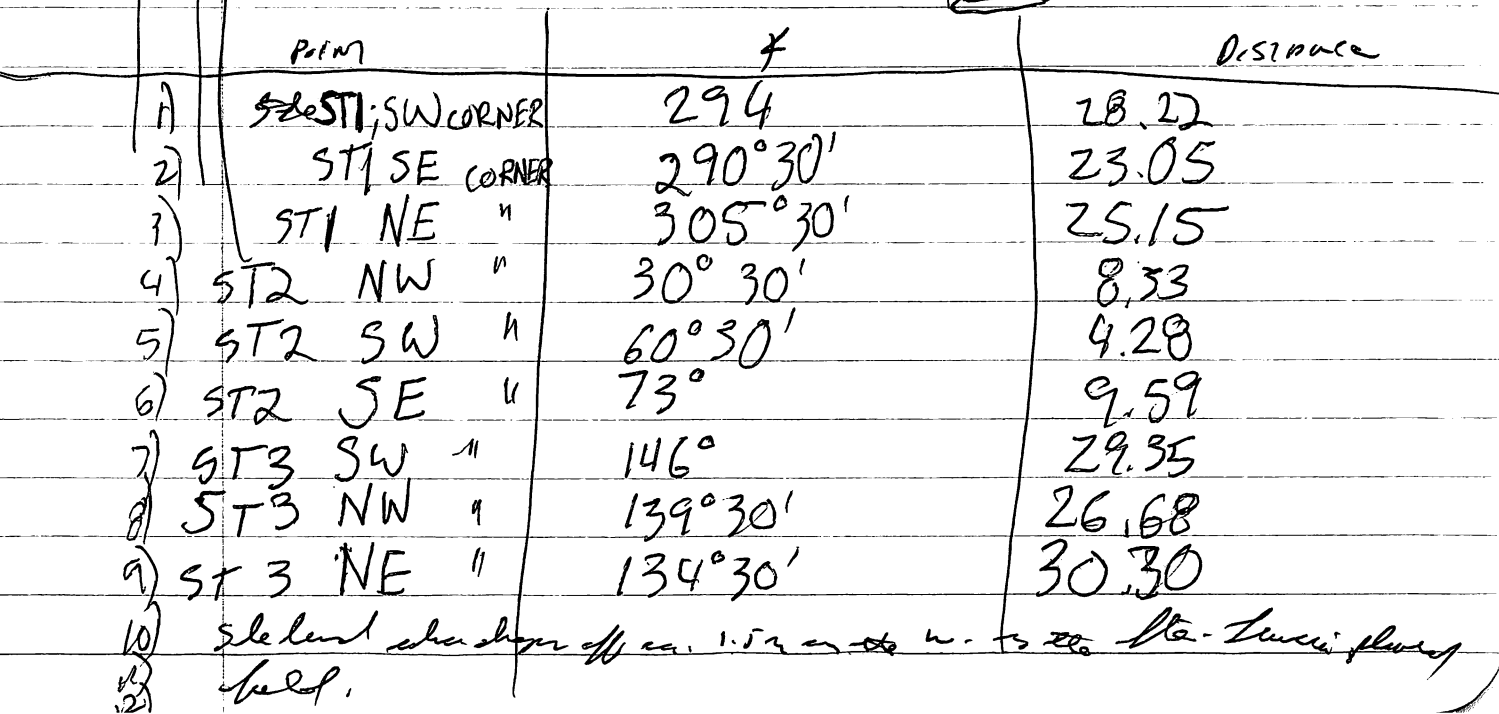 Point ∡ Distance
1) ST1; SW CORNER 294 28.22
2) ST1 SE CORNER 290°30' 23.05
3) ST1 NE " 305°30' 25.15
4) ST2 NW " 30° 30' 8.33
5) ST2 SW " 60°30' 4.28
6) ST2 SE " 73° 9.59
7) ST3 SW " 146° 29.35
8) ST3 NW " 139°30' 26.68
9) ST3 NE " 134°30' 30.30
10) drops off ca. 1.5m on the W. to the plowed
field.